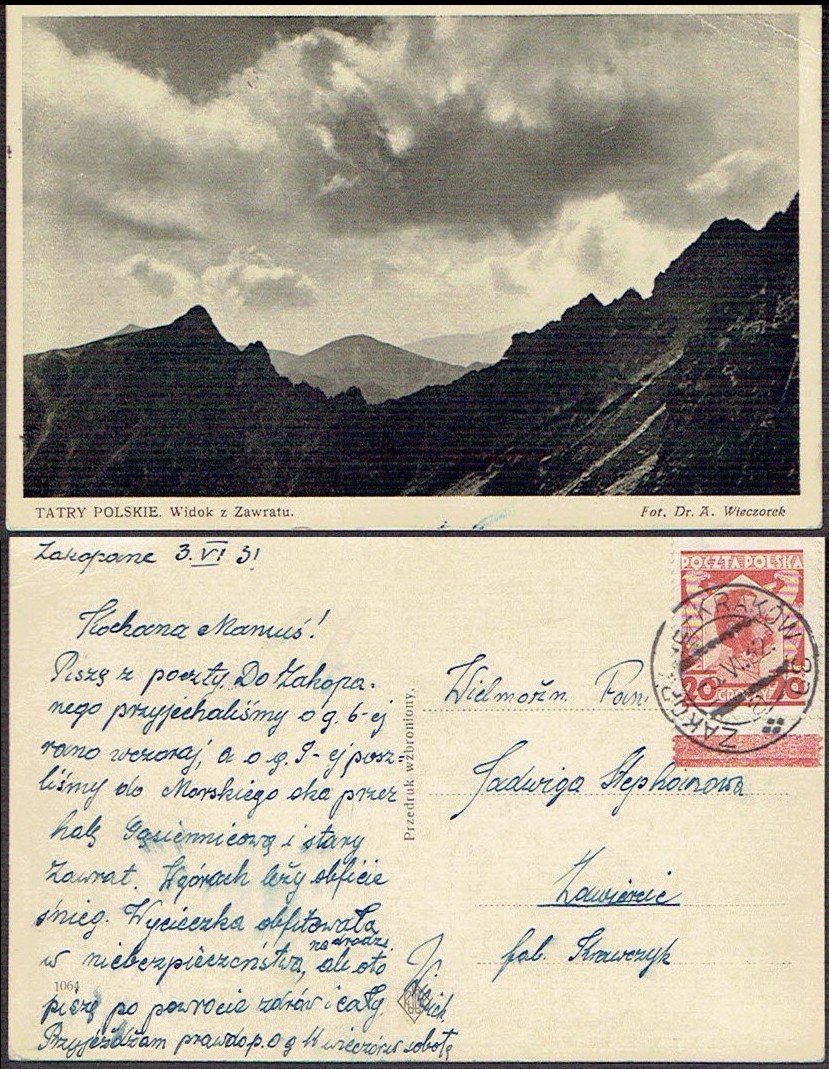 TATRY POLSKIE. Widok z Zawratu.
Fot. Dr. A. Wieczorek
Zakopane 3.VI 31
Kochana Mamuś!
Piszę z poczty. Do Zakopa-
nego przyjechaliśmy o g. 6-ej
rano wczoraj, a o g. 9-ej posz=
liśmy do Morskiego oka przez
halę Gąsiennicową i stary
Zawrat. W górach leży obficie
śnieg. Wycieczka obfitowała
w niebezpieczeństwa, na drodze, ale oto
piszę po powrocie zdrów i cały.
Przyjeżdżam prawdop. o g 11 wieczór w sobotę
1064
Przedruk wzbroniony.
POCZTA POLSKA
20 GROSZY 20
ZAKOPANE KRAKÓW 3a
Wielmożn. Pani
Jadwiga Stephanowa
Zawiercie
fab. Krawczyk